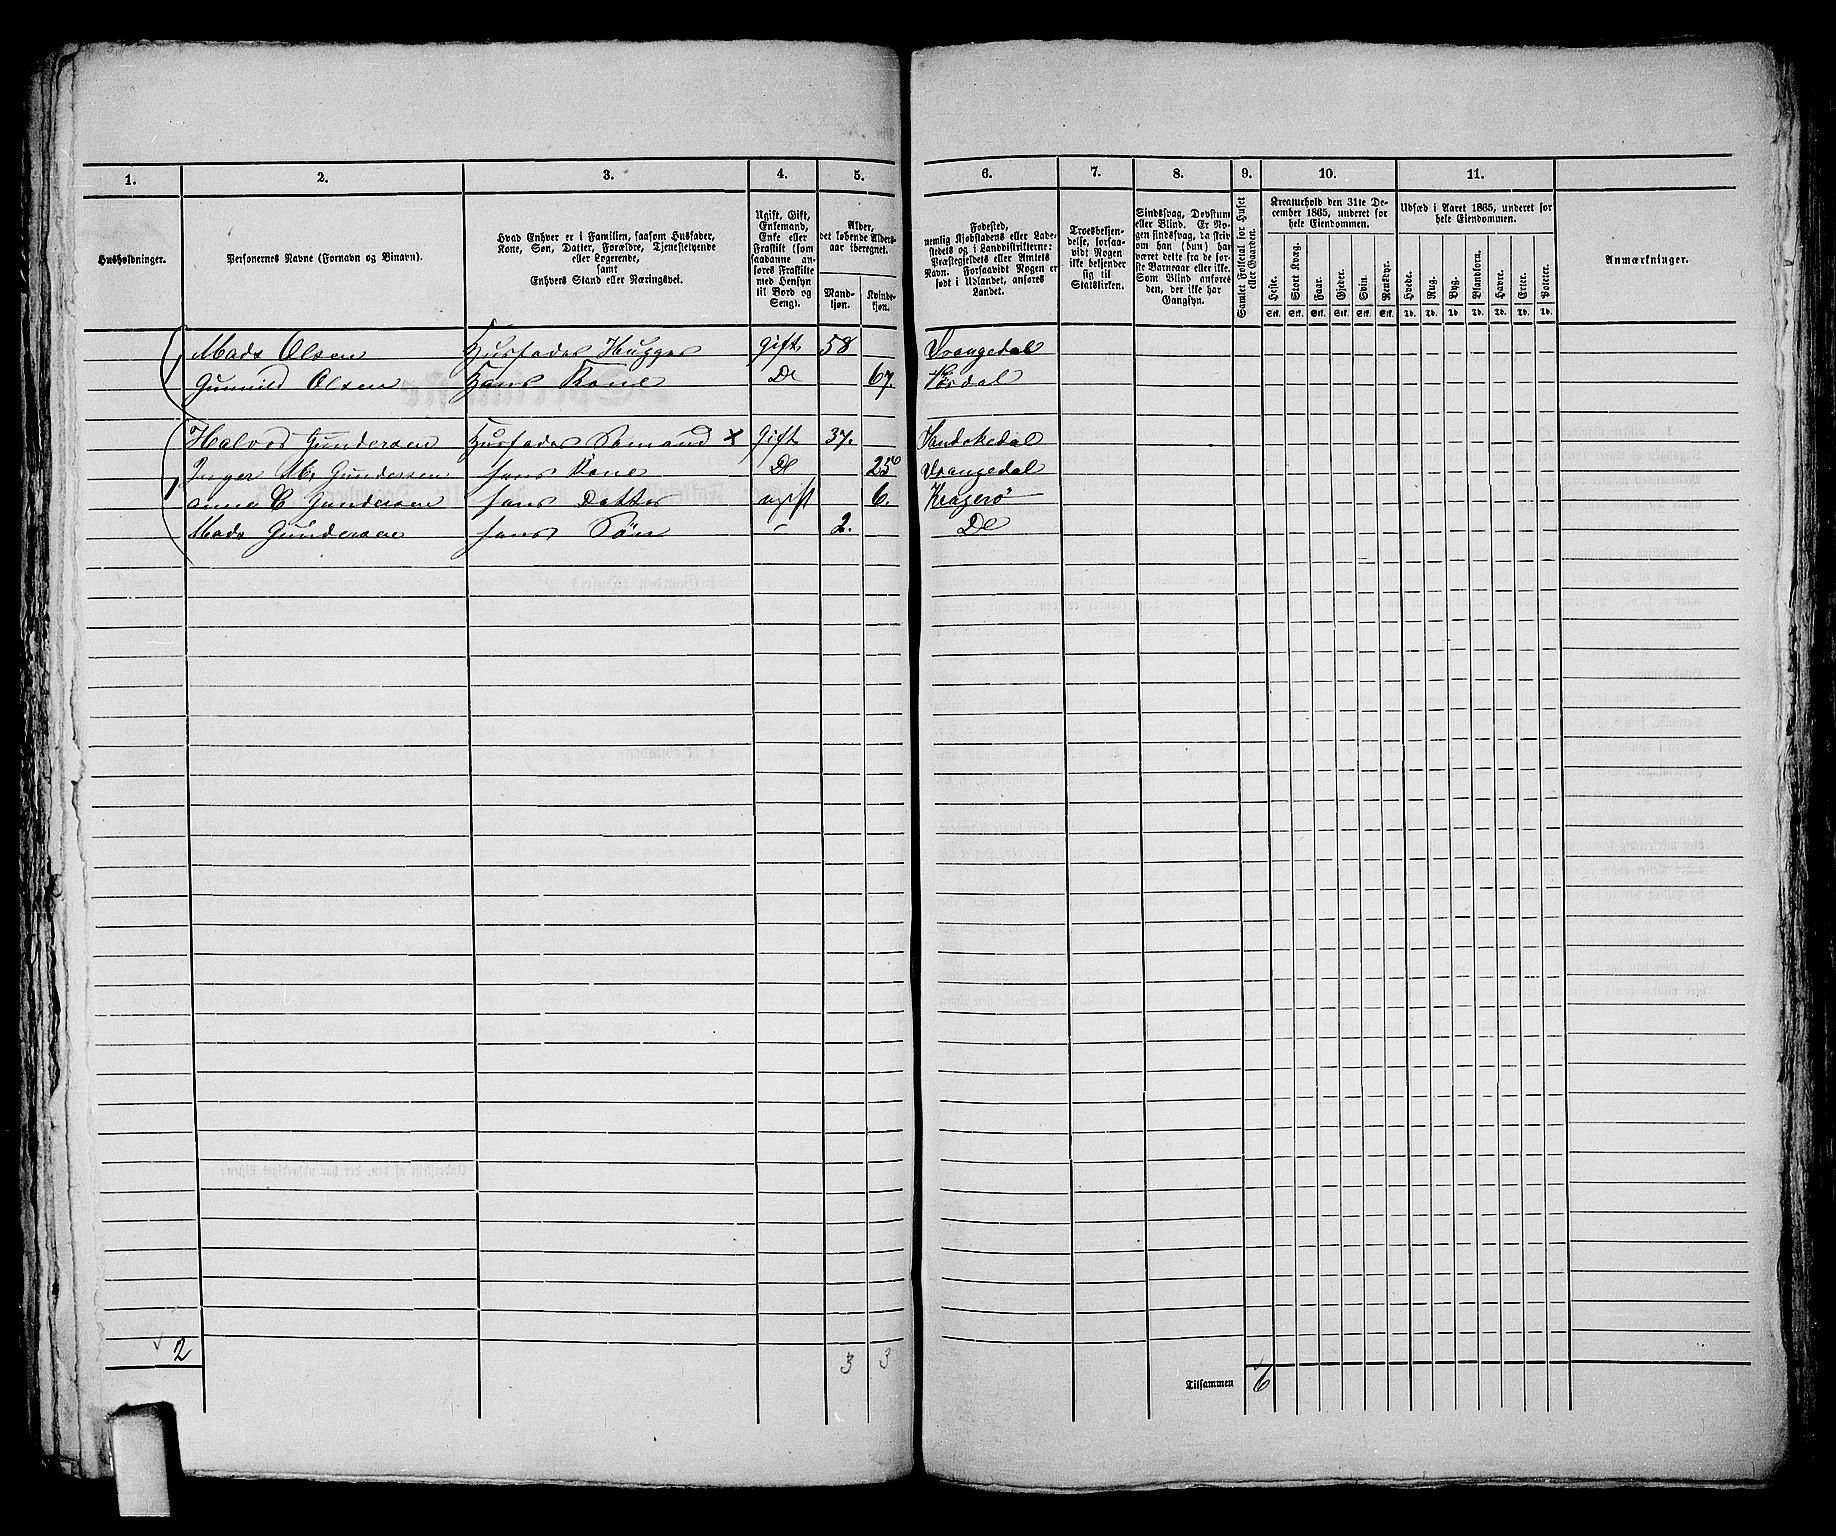 1. 2. 3. 4. 5. 6. 7. 8. 9. 10. 11.
Husholdninger.
Personernes Navne (Fornavn og Binavn).
Hvad Enhver er i Familien, saasom Husfader,
Kone, Søn, Datter, Forældre, Tjenestetyende
eller Logerende,
samt
Enhvers Stand eller Næringsvei.
Ugift, Gift,
Enkemand,
Enke eller
Fraskilt (som
saadanne an-
føres Fraskilte
med Hensyn
til Bord og
Seng).
Alder,
det løbende Alders-
aar iberegnet.
Mand-
kjøn.
Kvinde-
kjøn.
Fødested,
nemlig Kjøbstadens eller Lade-
stedets og i Landdistrikterne:
Præstegjeldets eller Amtets
Navn. Forsaavidt Nogen er
født i Udlandet, anføres
Landet.
Troesbekjen-
delse, forsaa-
vidt Nogen
ikke bekjender
sig til
Statskirken.
Sindssvag, Døvstum
eller Blind. Er No-
gen sindssvag, da skriv
om han (hun) har
været dette fra de før-
ste Barneaar eller ikke.
Som Blind anføres
den, der ikke har
Gangsyn.
Samlet Folketal for Huset
eller Gaarden.
Kreaturhold den 31te De-
cember 1865, underet for
hele Eiendommen.
Heste. Stort Kvæg. Faar. Gjeder. Svin. Rensdyr.
Stk. Stk. Stk. Stk. Stk. Stk.
Udsæd i Aaret 1865, underet for
hele Eiendommen.
Hvede. Rug. Byg. Blandkorn. Havre. Erter. Poteter.
Td. Td. Td. Td. Td. Td. Td.
Anmærkninger.
Mads Olsen Husfader Hugger gift 58 Drangedal
Gunnild Olsen Hans Kone Do 67. Tørdal
Halvor Gundersen Husfader Sømand x gift 37. Sandøkedal
Inger M. Gundersen hans Kone Do 25 Drangedal
Anna C Gundersen hans Datter ugift 6. Kragerø
Mads Gundersen hans Søn 2. Do
2 3 3 Tilsammen 6